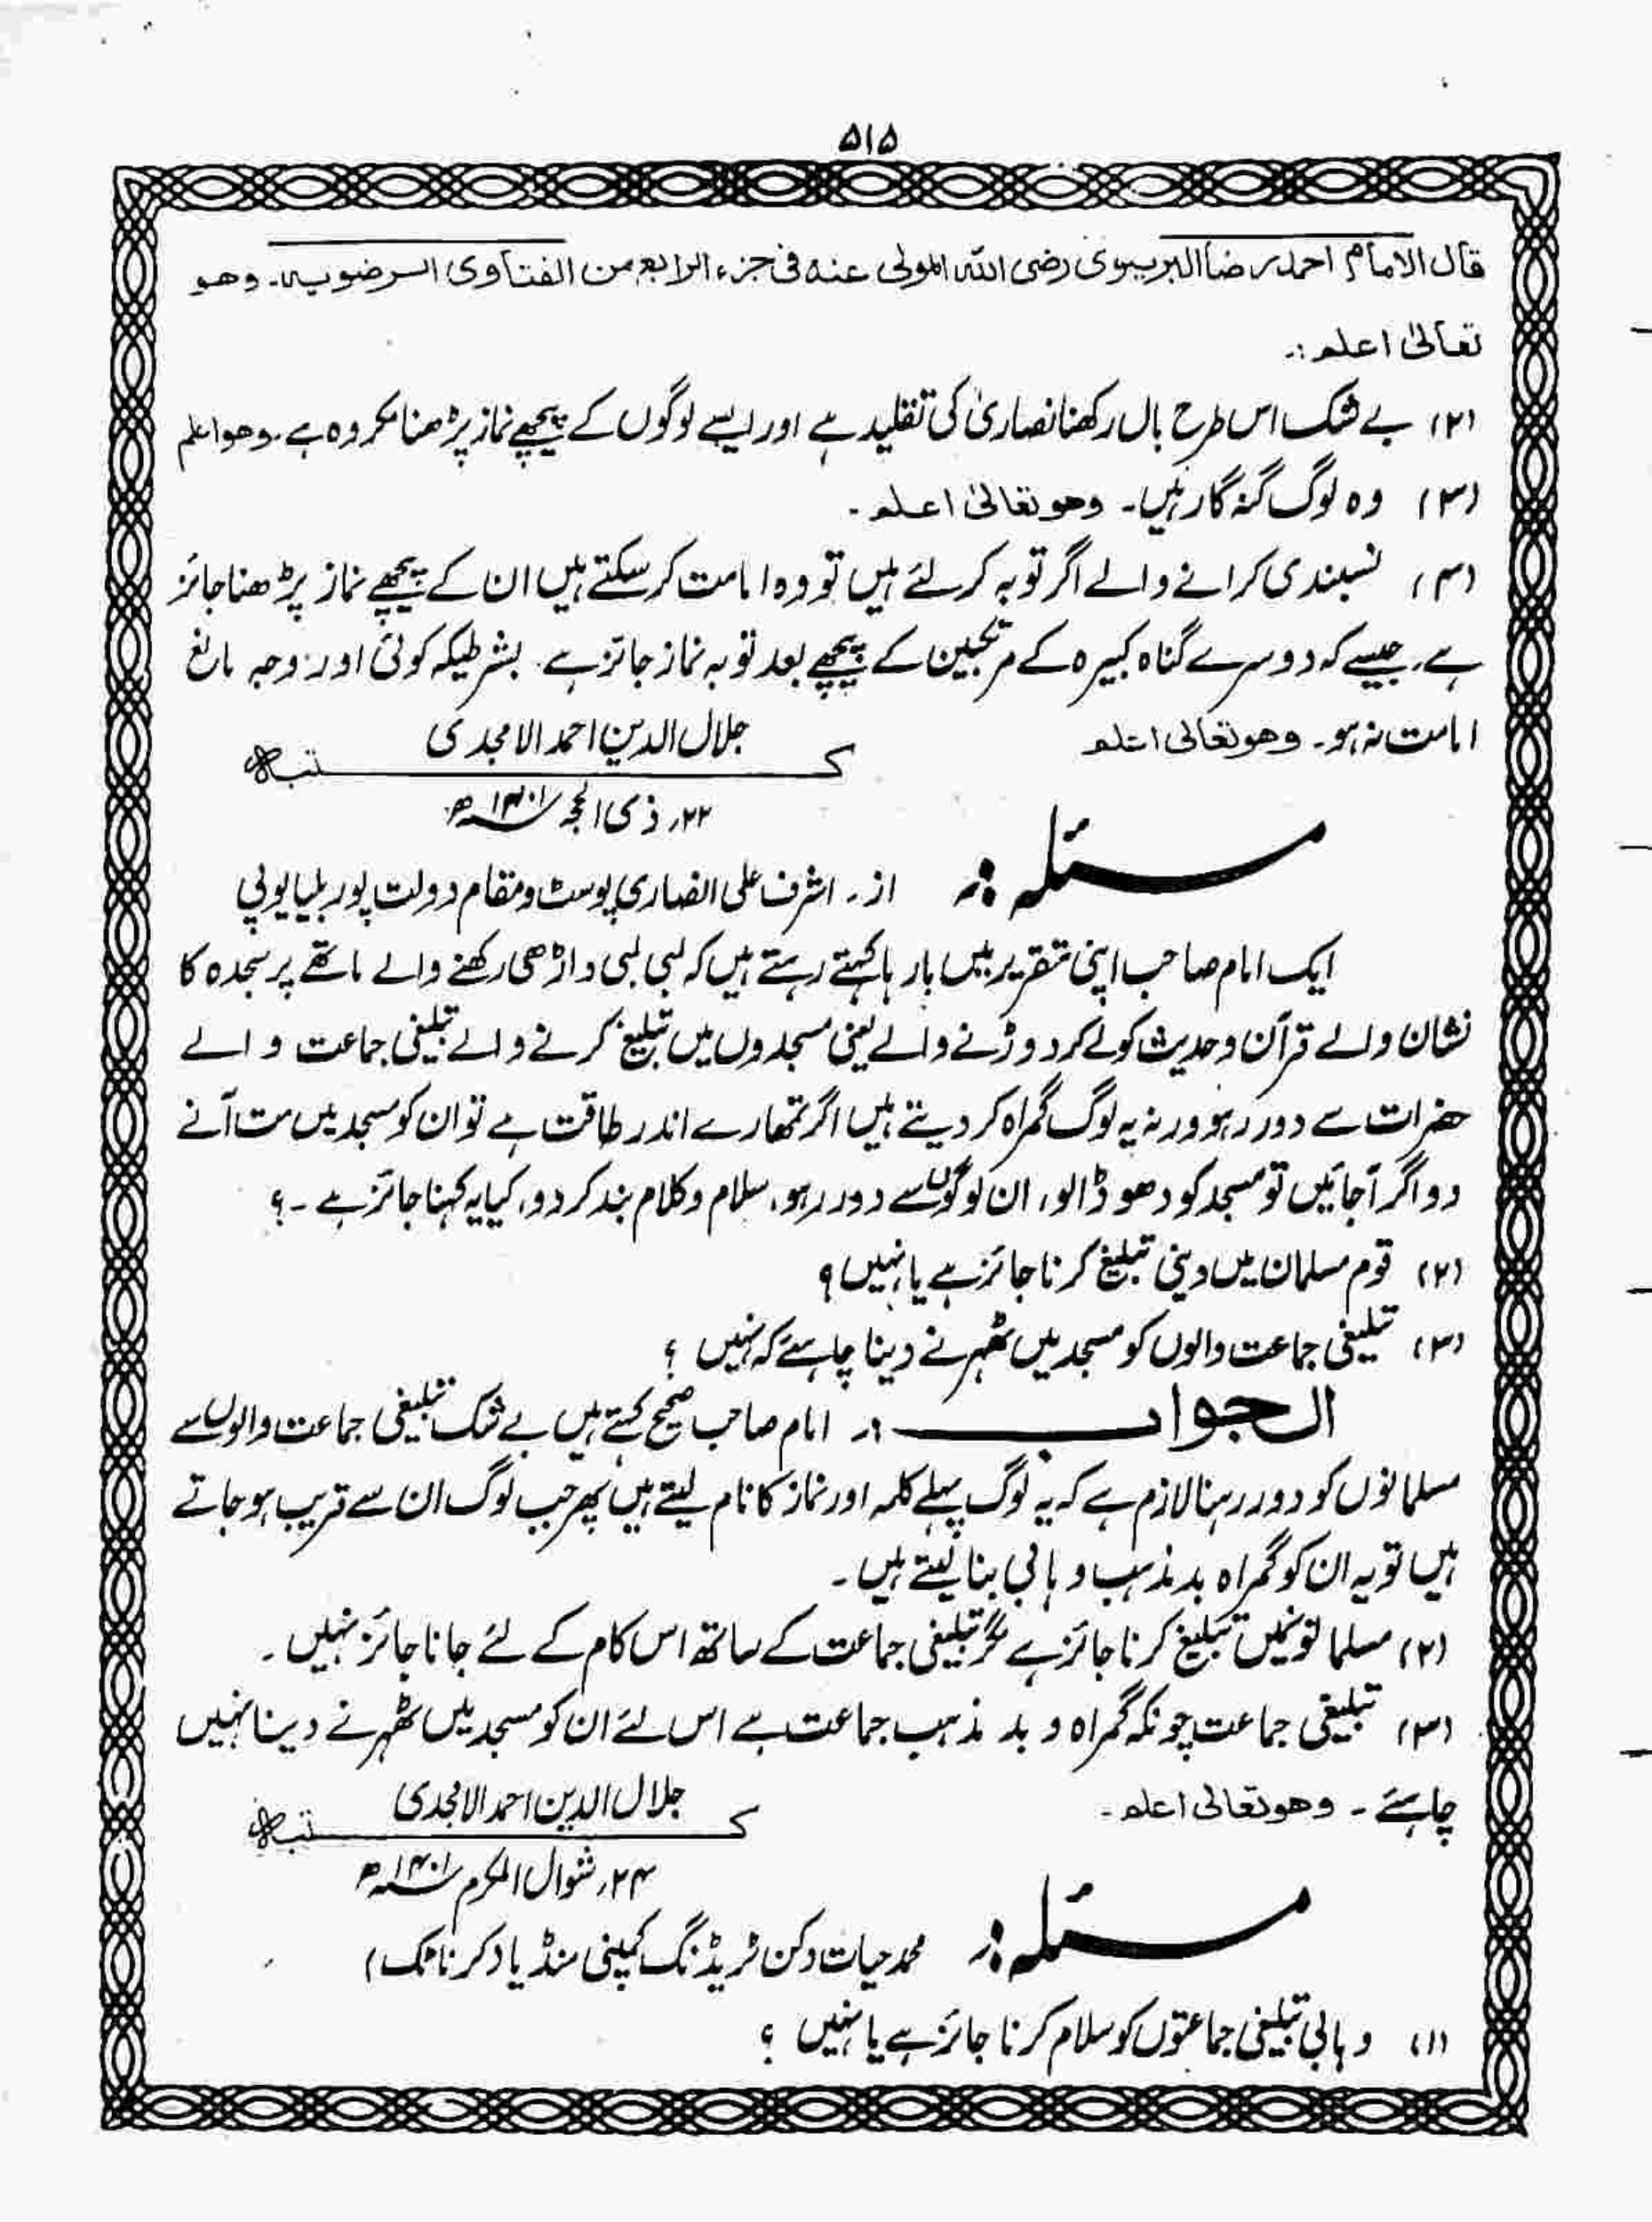 ۵۱۵
قال الامام احمد رضا البریلوی رضی اللہ المولی عنہ فی جزء الرابع من الفتاوی الرضویہ۔ وھو
تعالیٰ اعلم :۔
(۲) بے شک اس طرح بال رکھنا نصاریٰ کی تقلید ہے اور ایسے لوگوں کے پیچھے نماز پڑھنا مکروہ ہے۔ وھو اعلم
(۳) وہ لوگ گنہ گار ہیں۔ وھو تعالیٰ اعلم۔
(۴) نسبندی کرانے والے اگر توبہ کر لئے ہیں تو وہ امامت کر سکتے ہیں ان کے پیچھے نماز پڑھنا جائز
ہے۔ جیسے کہ دوسرے گناہ کبیرہ کے مرتکبین کے پیچھے بعد توبہ نماز جائز ہے۔ بشرطیکہ کوئی اور وجہ مانع
امامت نہ ہو۔ وھو تعالیٰ اعلم
کتبہ جلال الدین احمد الامجدی
۲۲؍ ذی الحجہ ۱۴۰۱ھ
مسئلہ :۔ از۔ اشرف علی انصاری پوسٹ و مقام دولت پور بلیا یوپی
ایک امام صاحب اپنی تقریر میں بارہا کہتے رہتے ہیں کہ لمبی لمبی داڑھی رکھنے والے ماتھے پر سجدہ کا
نشان والے قرآن و حدیث کو لے کر دوڑنے والے یعنی مسجدوں میں تبلیغ کرنے والے تبلیغی جماعت والے
حضرات سے دور رہو ورنہ یہ لوگ گمراہ کر دیتے ہیں اگر تمھارے اندر طاقت ہے تو ان کو مسجد میں مت آنے
دو اگر آجائیں تو مسجد کو دھو ڈالو، ان لوگوں سے دور رہو، سلام و کلام بند کردو، کیا یہ کہنا جائز ہے۔؟
(۲) قوم مسلمان میں دینی تبلیغ کرنا جائز ہے یا نہیں؟
(۳) تبلیغی جماعت والوں کو مسجد میں ٹھہرنے دینا چاہئے کہ نہیں ؟
الجواب :۔ امام صاحب صحیح کہتے ہیں بے شک تبلیغی جماعت والوں سے
مسلمانوں کو دور رہنا لازم ہے کہ یہ لوگ پہلے کلمہ اور نماز کا نام لیتے ہیں پھر جب لوگ ان سے قریب ہو جاتے
ہیں تو یہ ان کو گمراہ بد مذہب وہابی بنا لیتے ہیں۔
(۲) مسلمانوں میں تبلیغ کرنا جائز ہے مگر تبلیغی جماعت کے ساتھ اس کام کے لئے جانا جائز نہیں۔
(۳) تبلیغی جماعت چونکہ گمراہ و بد مذہب جماعت ہے اس لئے ان کو مسجد میں ٹھہرنے دینا نہیں
چاہئے۔ وھو تعالیٰ اعلم۔
کتبہ جلال الدین احمد الامجدی
۲۴؍ شوال المکرم ۱۴۰۱ھ
مسئلہ :۔ محمد حیات دکن ٹریڈنگ کمپنی منڈیا (کرناٹک)
(۱) وہابی تبلیغی جماعتوں کو سلام کرنا جائز ہے یا نہیں ؟